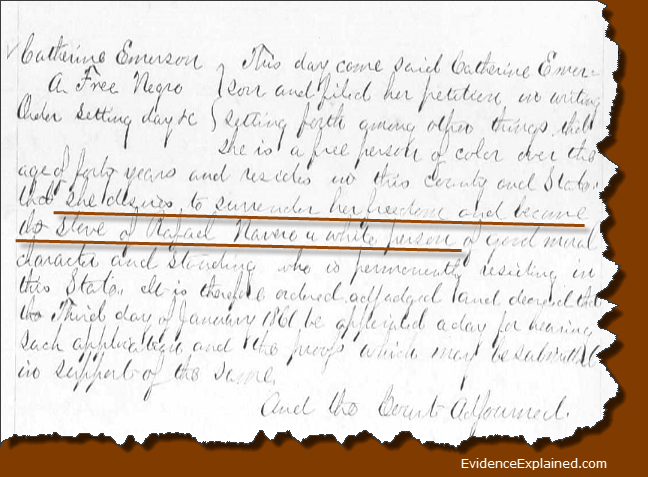 Catherine Emerson } This day came said Catherine Emer=
A Free Negro } son and filed her petition in writing
Order setting day &c } setting forth among other things that
she is a free person of color over the
age of forty years and resides in this county and State.
that she desires to surrender her freedom and become
the Slave of Rafael Navero a white person of good moral
character and standing who is permanently residing in
this State. It is therefore ordered adjudged and decreed that
the Third day of January 1861 be appointed a day for hearing
such application and the proofs which may be submitted
in support of the same.
And the Court adjourned.
EvidenceExplained.com